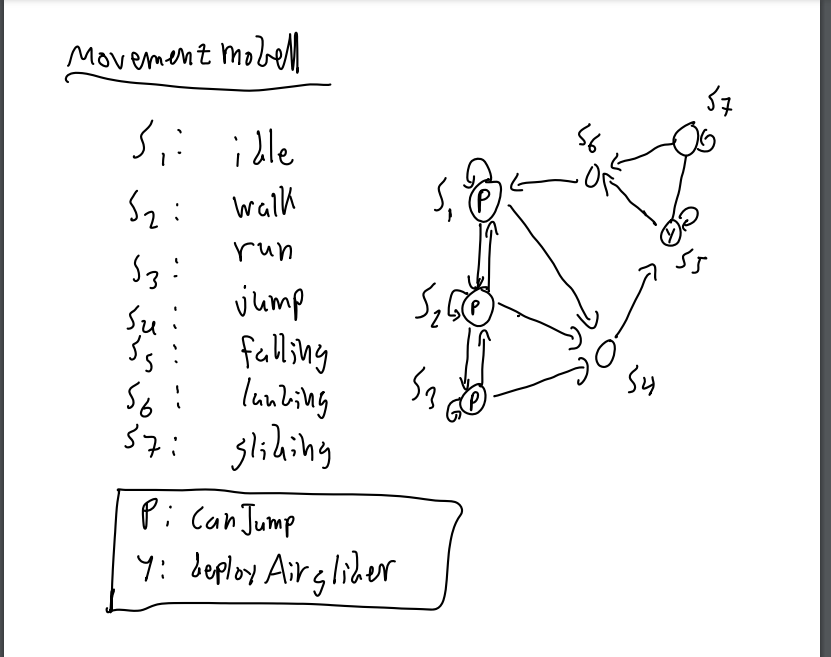 Movement mobell
S1: idle
S2: walk
S3: run
S4: jump
S5: falling
S6: landing
S7: gliding
P: CanJump
Y: deploy Airglider
S7
S6
S1
P
Y
S5
S2
P
S4
S3
P